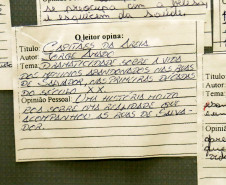 se preocupa com a beleza
e esquecem da saúde.
O leitor opina:
Título: CAPITÃES DA AREIA
Autor: JORGE AMADO
Tema: DRAMATICIDADE SOBRE A VIDA
DOS MENINOS ABANDONADOS NAS RUAS
DE SALVADOR, NAS PRIMEIRAS DÉCADAS
DO SÉCULO XX.
Opinião Pessoal: UMA HISTÓRIA MUITO
SOBRE UMA REALIDADE QUE
AS RUAS DE SALVA-
DOR.
Opinião